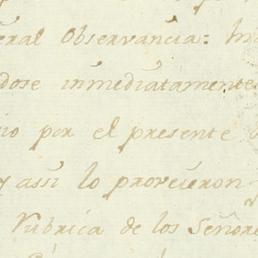 eral Observancia: 
dose inmediatamente
io por el presente
y assi lo proveieron
Rubrica de los Señore